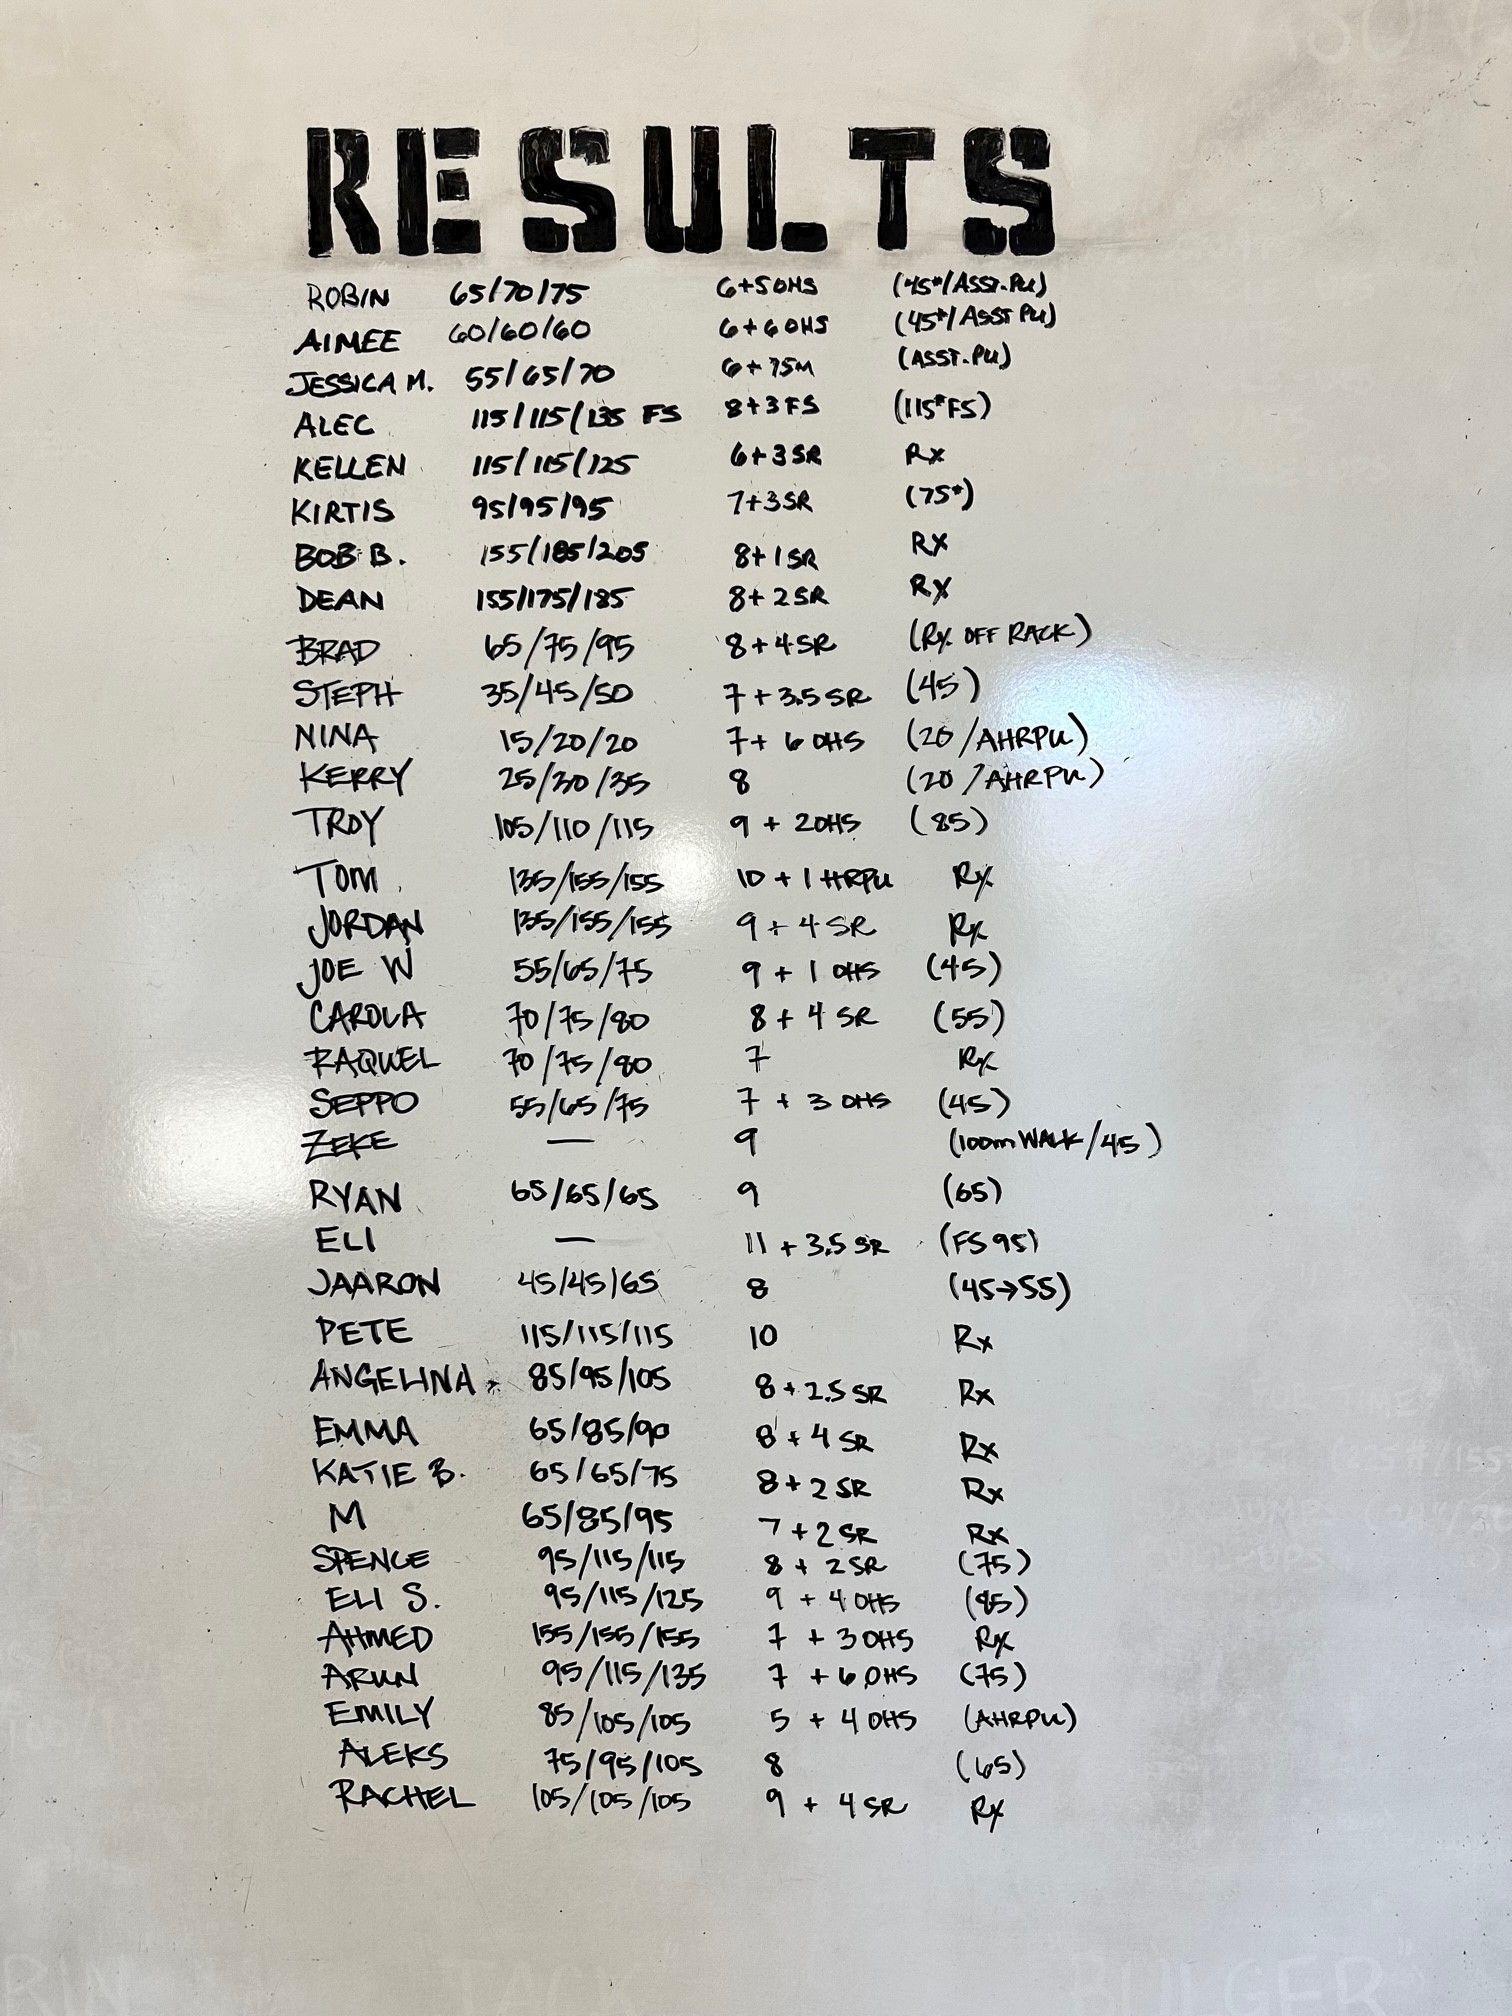 RESULTS
ROBIN 65/70/75 6+5OHS (45#/ASST.PU)
AIMEE 60/60/60 6+6OHS (45#/ASST PU)
JESSICA M. 55/65/70 6+75M (ASST.PU)
ALEC 115/115/135 FS 8+3FS (115#FS)
KELLEN 115/115/125 6+3SR Rx
KIRTIS 95/95/95 7+3SR (75#)
BOB B. 155/185/205 8+1SR RX
DEAN 155/175/185 8+2SR RX
BRAD 65/75/95 8+4SR (RX OFF RACK)
STEPH 35/45/50 7+3.5SR (45)
NINA 15/20/20 7+6OHS (20/AHRPU)
KERRY 25/30/35 8 (20/AHRPU)
TROY 105/110/115 9+2OHS (85)
TOM 135/155/155 10+1HRPU Rx
JORDAN 135/155/155 9+4SR Rx
JOE W 55/65/75 9+1OHS (45)
CAROLA 70/75/80 8+4SR (55)
RAQUEL 70/75/80 7 Rx
SEPPO 55/65/75 7+3OHS (45)
ZEKE — 9 (100m WALK/45)
RYAN 65/65/65 9 (65)
ELI — 11+3.5SR (FS95)
JAARON 45/45/65 8 (45→55)
PETE 115/115/115 10 Rx
ANGELINA 85/95/105 8+2.5SR Rx
EMMA 65/85/90 8+4SR Rx
KATIE B. 65/65/75 8+2SR Rx
M 65/85/95 7+2SR Rx
SPENCE 95/115/115 8+2SR (75)
ELI S. 95/115/125 9+4OHS (85)
AHMED 155/155/155 7+3OHS Rx
ARUN 95/115/135 7+6OHS (75)
EMILY 85/105/105 5+4OHS (AHRPU)
ALEKS 75/95/105 8 (65)
RACHEL 105/105/105 9+4SR Rx
JACK
"BULGER"